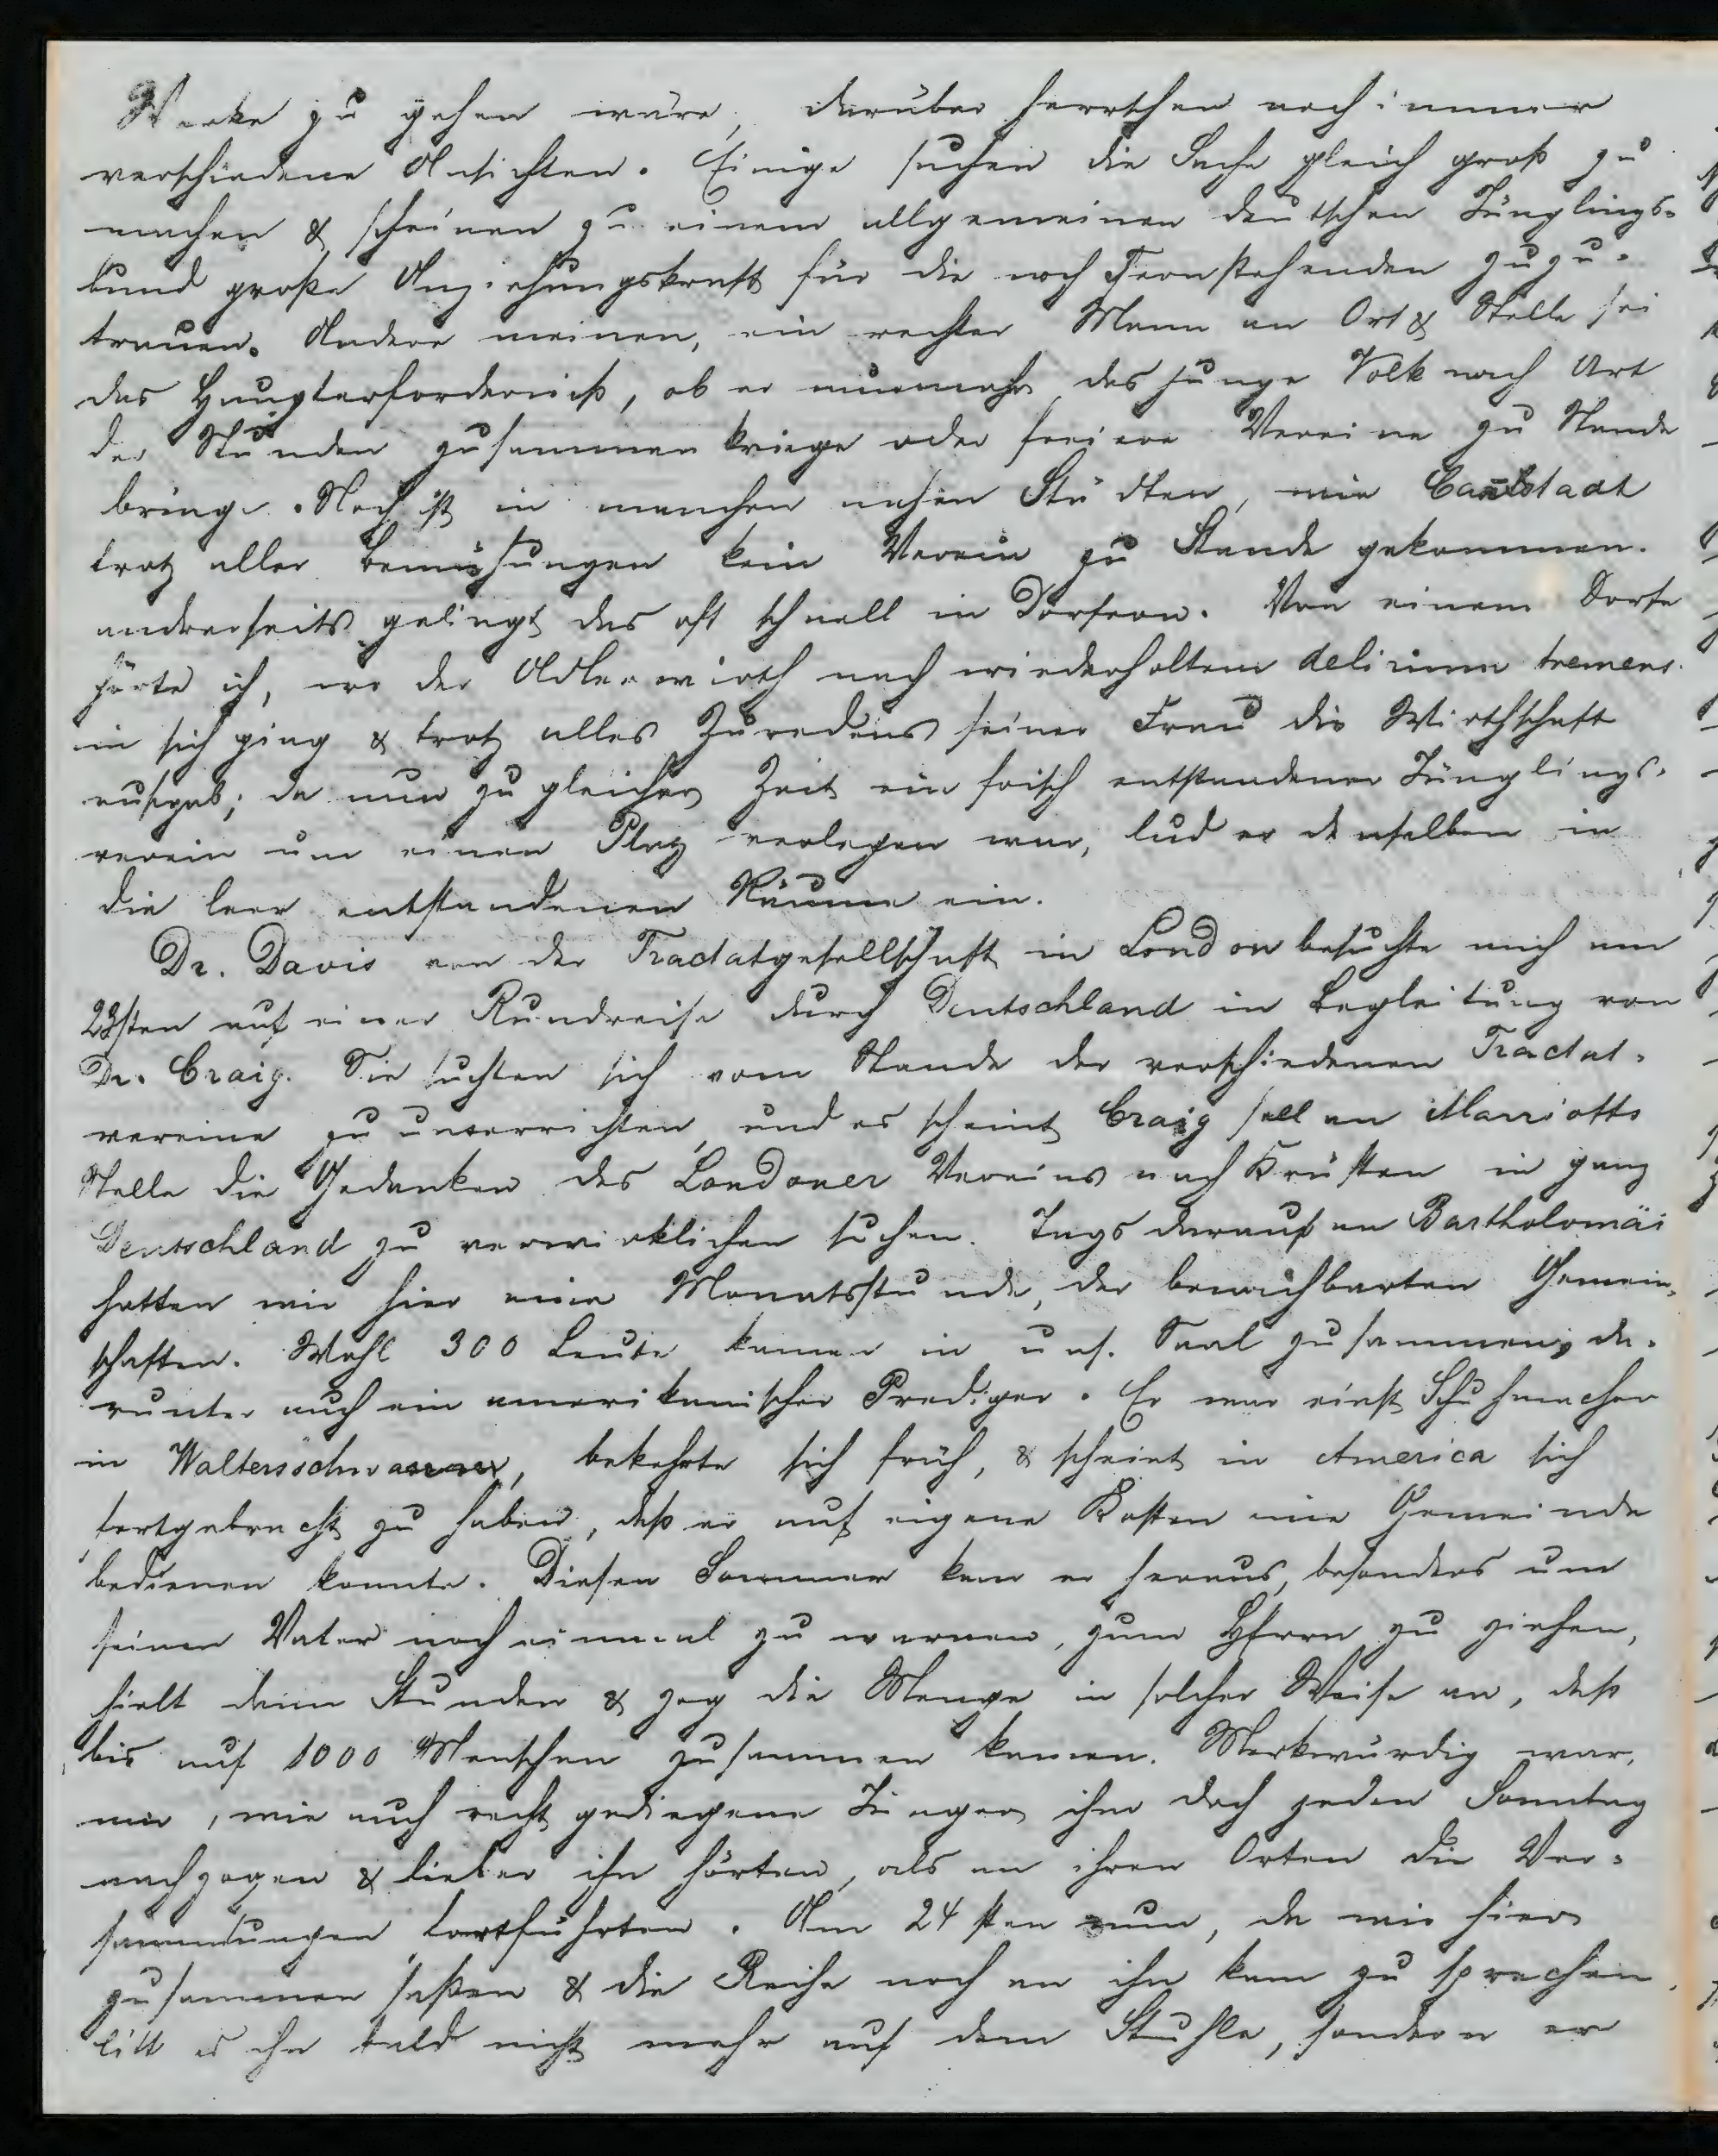 Werke zu gehen wäre, darüber herrschen noch immer
verschiedene Ansichten. Einige suchen die Sache gleich groß zu
machen & scheinen zu einem allgemeinen deutschen Jünglings-
bund große Anziehungskraft für die noch Fernstehenden zuzu-
trauen. Andere meinen, ein rechter Mann an Ort & Stelle sei
das Haupterforderniß, ob er nunmehr das junge Volk nach Art
der Stunden zusammen kriege oder freiere Vereine zu Stande
bringe. Noch ist in manchen nahen Städten, wie Cannstadt
trotz aller Bemühungen kein Verein zu Stande gekommen.
andrerseits gelingt das oft schnell in Dörfern. Von einem Dorfe
hörte ich, wo der Adlerwirth nach wiederholtem delirium tremens
in sich ging & trotz alles Zuredens seiner Frau die Wirthschaft
aufgab; da nun zu gleicher Zeit ein frisch entstandener Jünglings-
verein um einen Platz verlegen war, lud er denselben in
die leer entstandenen Räume ein.
Dr. Davis von der Tractatgesellschaft in London besuchte mich am
23sten auf einer Rundreise durch Deutschland in Begleitung von
Dr. Craig. Sie suchten sich vom Stande der verschiedenen Tractat-
vereine zu unterrichten, und es scheint Craig soll an Marriotts
Stelle die Gedanken des Londoner Vereins nach Kräften in ganz
Deutschland zu verwirklichen suchen. Tags darauf an Bartholomäi
hatten wir hier eine Monatsstunde, der benachbarten Gemein-
schaften. Wohl 300 Leute kamen in uns. Saal zusammen, da-
runter auch ein amerikanischer Prediger. Er war einst Schuhmacher
in bekehrte sich früh, & scheint in America sich
fortgebracht zu haben, daß er auf eigene Kosten eine Gemeinde
bedienen konnte. Diesen Sommer kam er heraus, besonders um
seinen Vater noch einmal zu warnen, zum HErrn zu ziehen,
hielt dann Stunden & zog die Menge in solcher Weise an, daß
bis auf 1000 Menschen zusammen kamen. Merkwürdig war
mir, wie auch recht gediegene Jünger ihm doch jeden Sonntag
nachzogen & lieber ihn hörten, als an ihren Orten die Ver-
sammlungen fortführten. Am 24sten nun, da wir hier
zusammen saßen & die Reihe noch an ihn kam zu sprechen,
litt es ihn bald nicht mehr auf dem Stuhle, sondern er